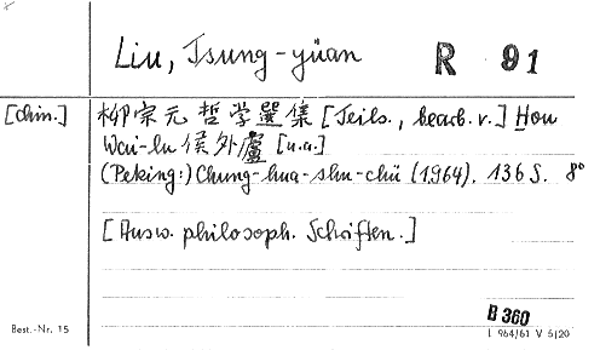 Liu, Tsung-yüan R 91
[chin.] 柳宗元 哲学選集 [Teils., bearb. v.] Hou
Wai-lu 侯外廬 [u.a.]
(Peking:) Chung-hua-shu-chü (1964). 136 S. 8°
[Ausw. philosoph. Schriften.]
B 360
Best.-Nr. 15 L 964/61 V 5/20